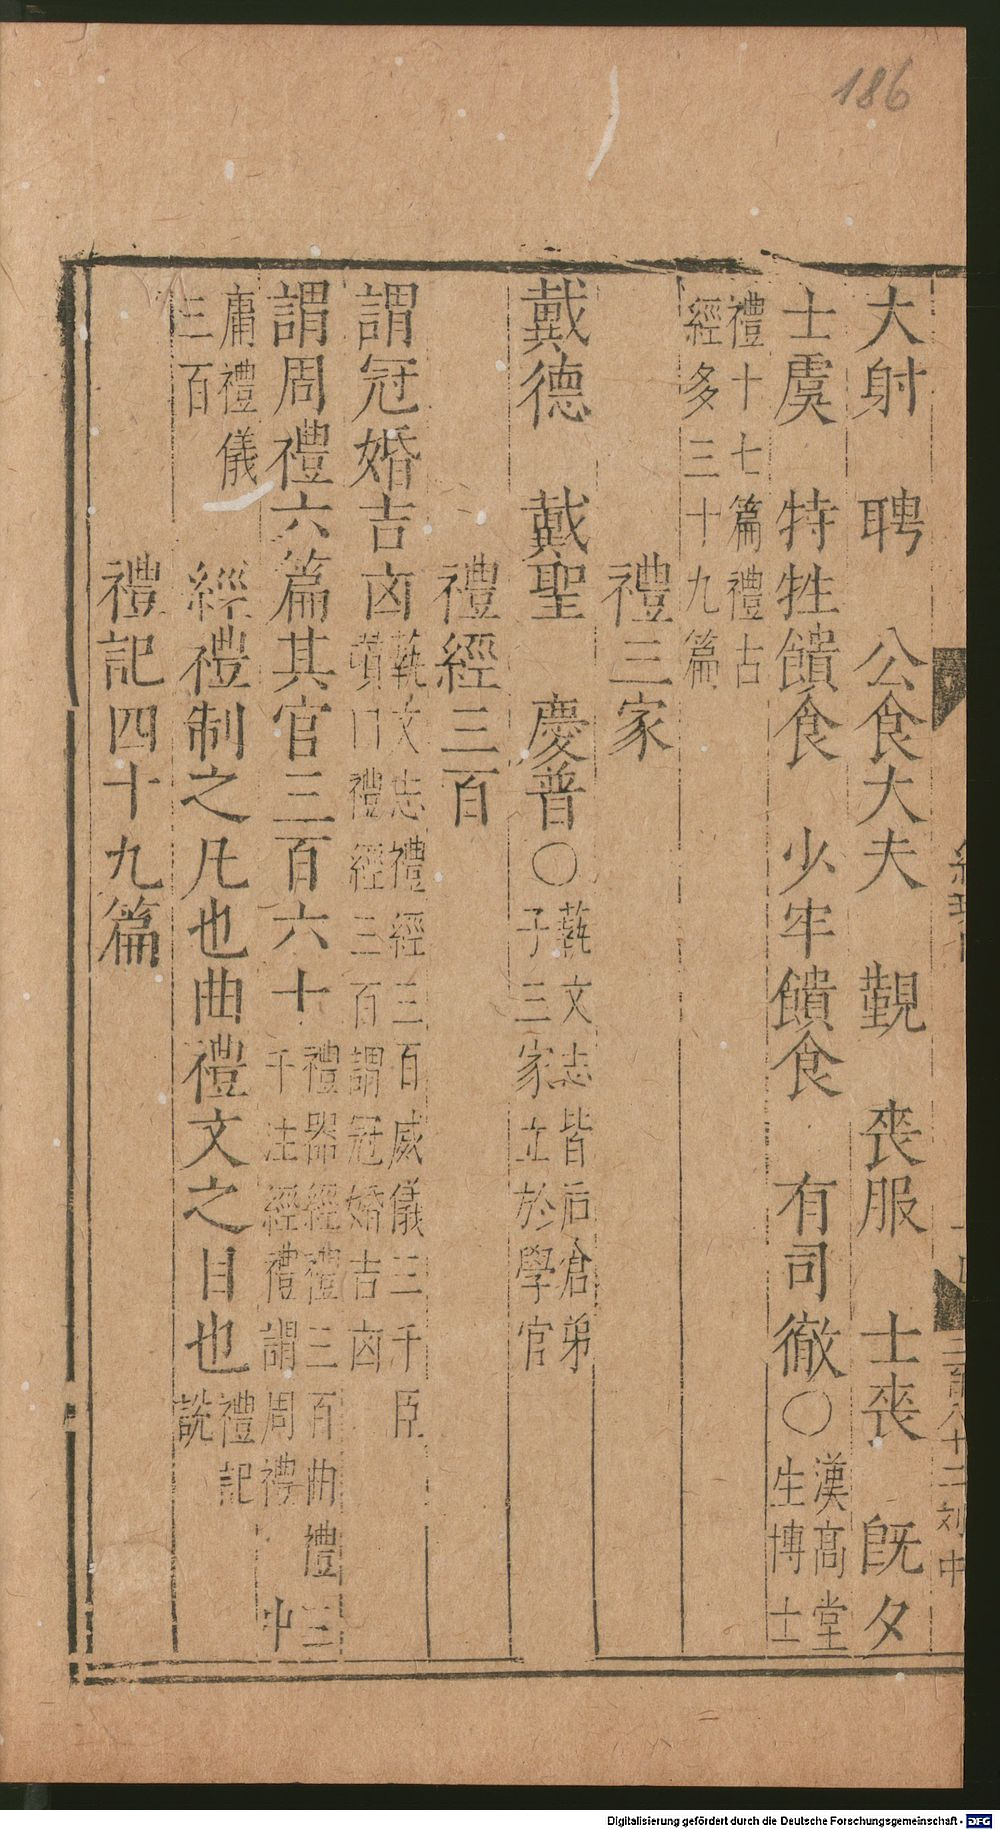 186
大射　聘　公食大夫　覲　喪服　士喪　旣夕
士虞　特牲饋食　少牢饋食　有司徹○漢髙堂
生博士
禮十七篇禮古
經多三十九篇
禮三家
戴德　戴聖　慶普○蓺文志皆后倉弟
子三家立於學官
禮經三百
謂冠婚吉凶蓺文志禮經三百威儀三千臣
瓉曰禮經三百謂冠婚吉凶
謂周禮六篇其官三百六十禮器經禮三百曲禮三
千注經禮謂周禮　中
庸禮儀
三百
經禮制之凡也曲禮文之目也禮記
說
禮記四十九篇
三百八十二刘中
Digitalisierung gefördert durch die Deutsche Forschungsgemeinschaft - DFG